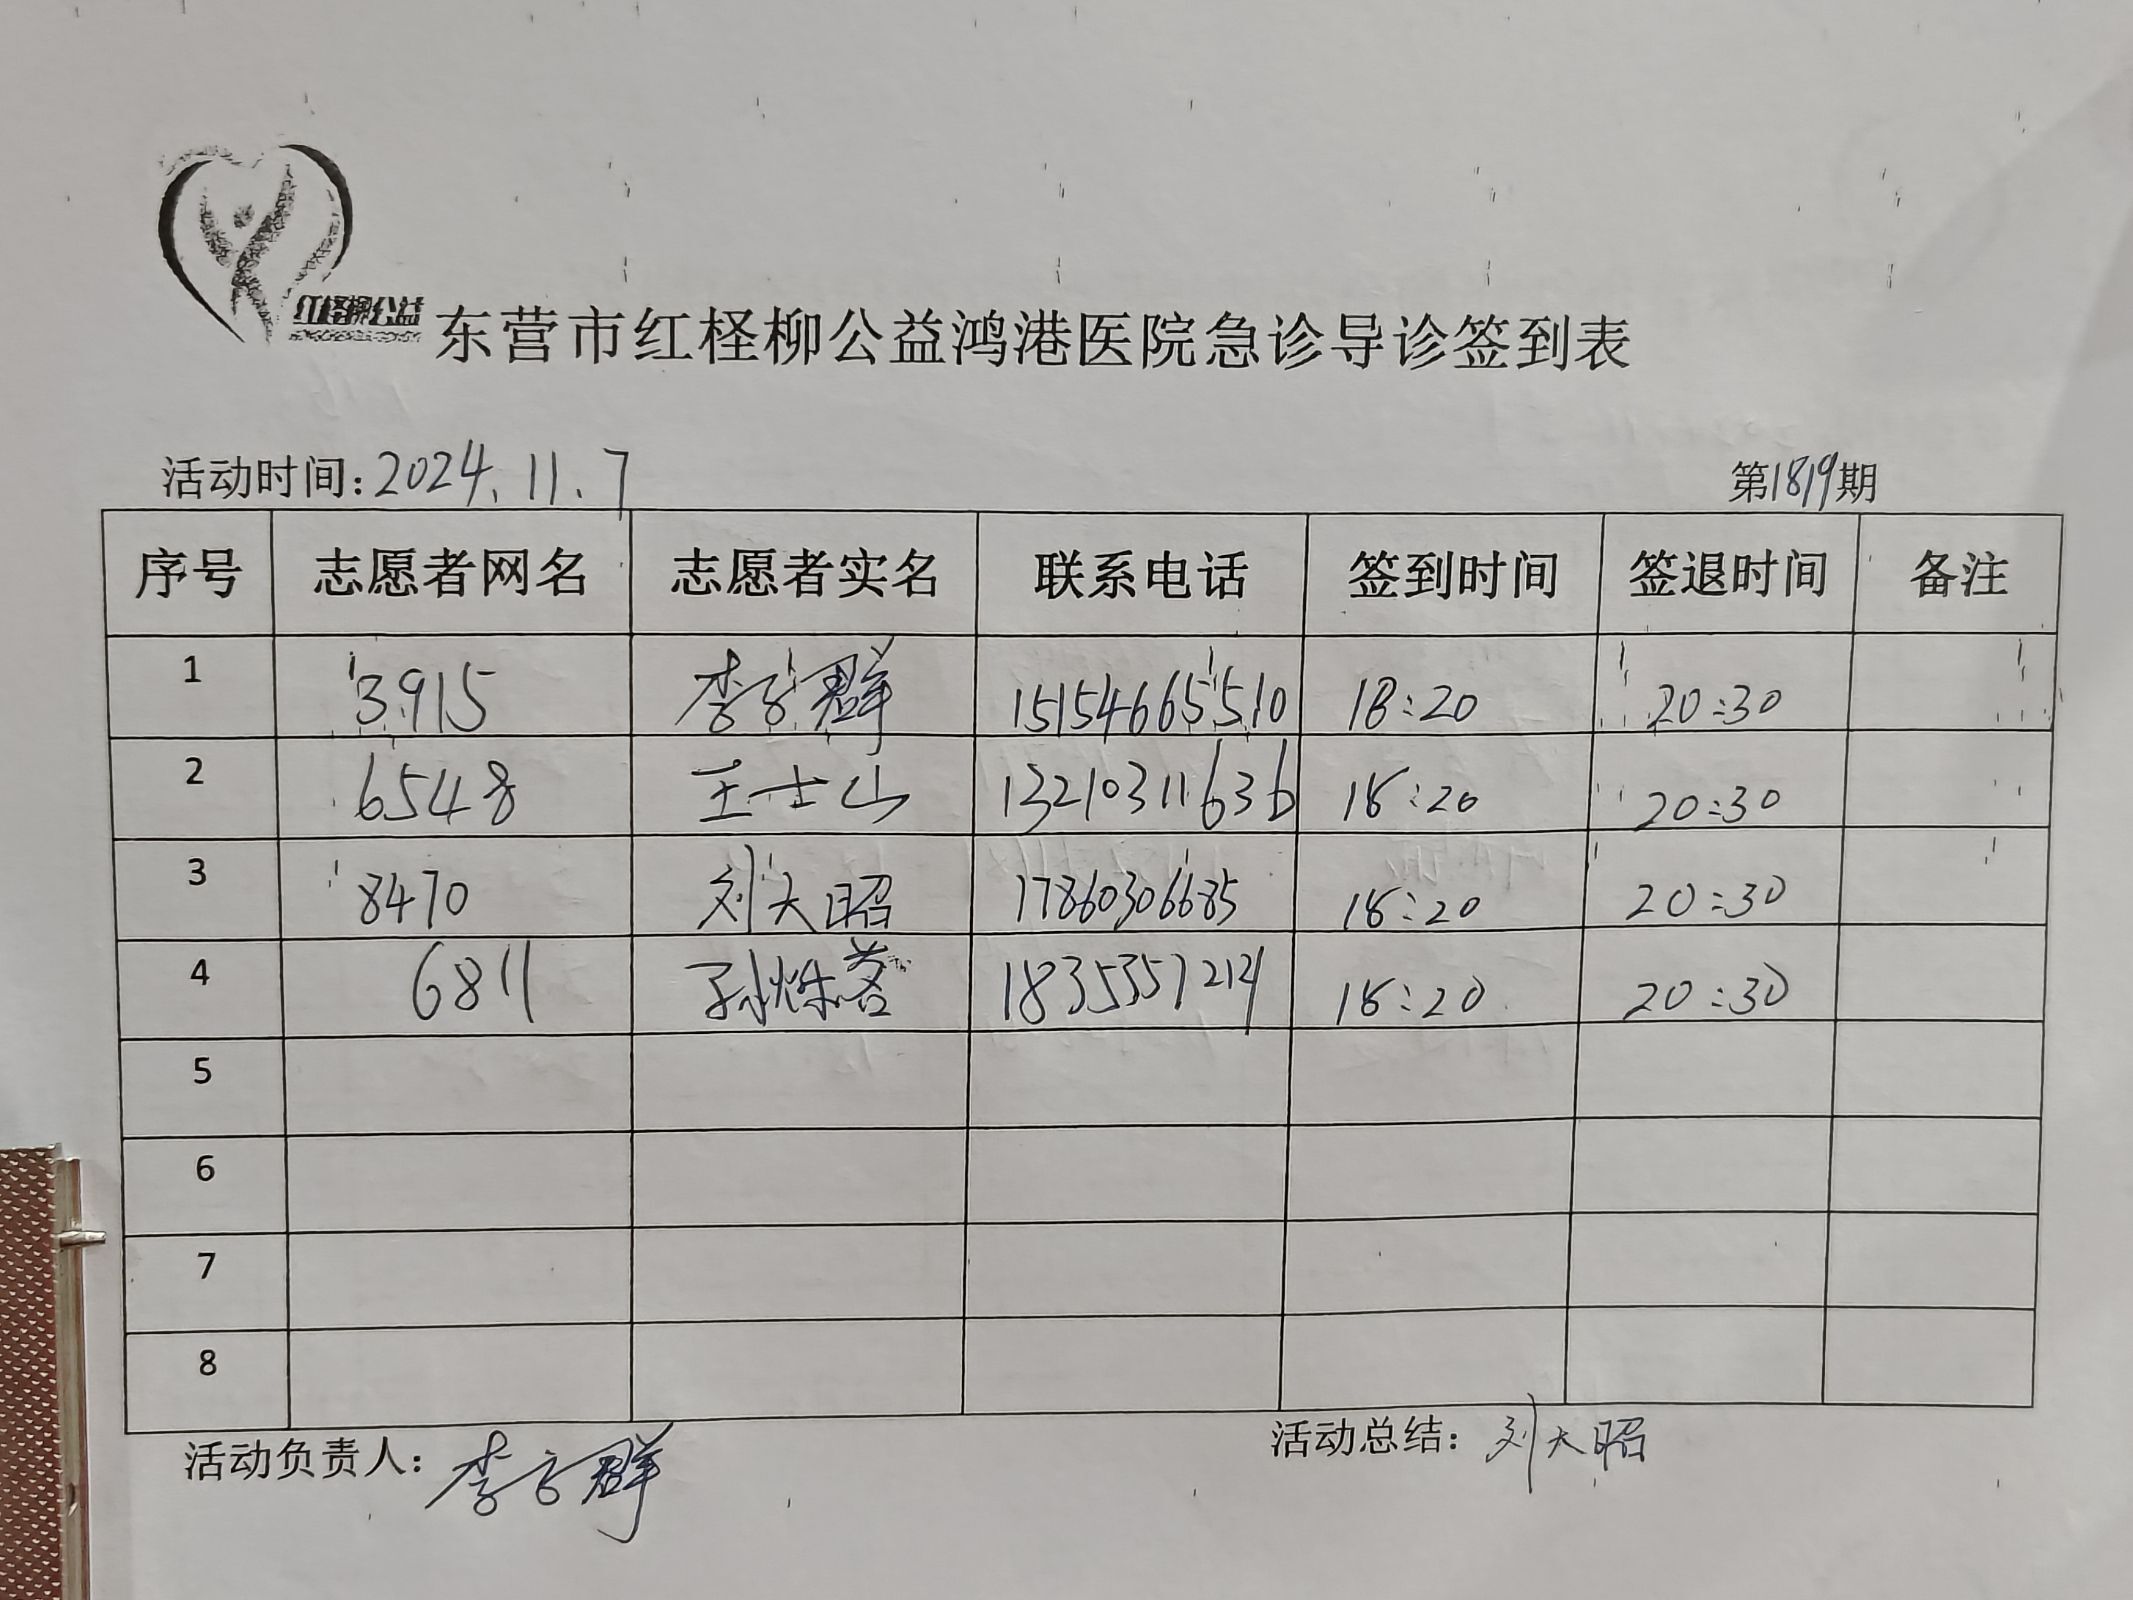 红柽柳公益
东营市红柽柳公益鸿港医院急诊导诊签到表
活动时间:2024.11.7 第1819期
序号 志愿者网名 志愿者实名 联系电话 签到时间 签退时间 备注
1 3915 李方群 15154665510 18:20 20:30
2 6548 王士山 13210311636 18:20 20:30
3 8470 刘大昭 17860306685 18:20 20:30
4 6811 18:20 20:30
5
6
7
8
活动负责人:李方群 活动总结:刘大昭